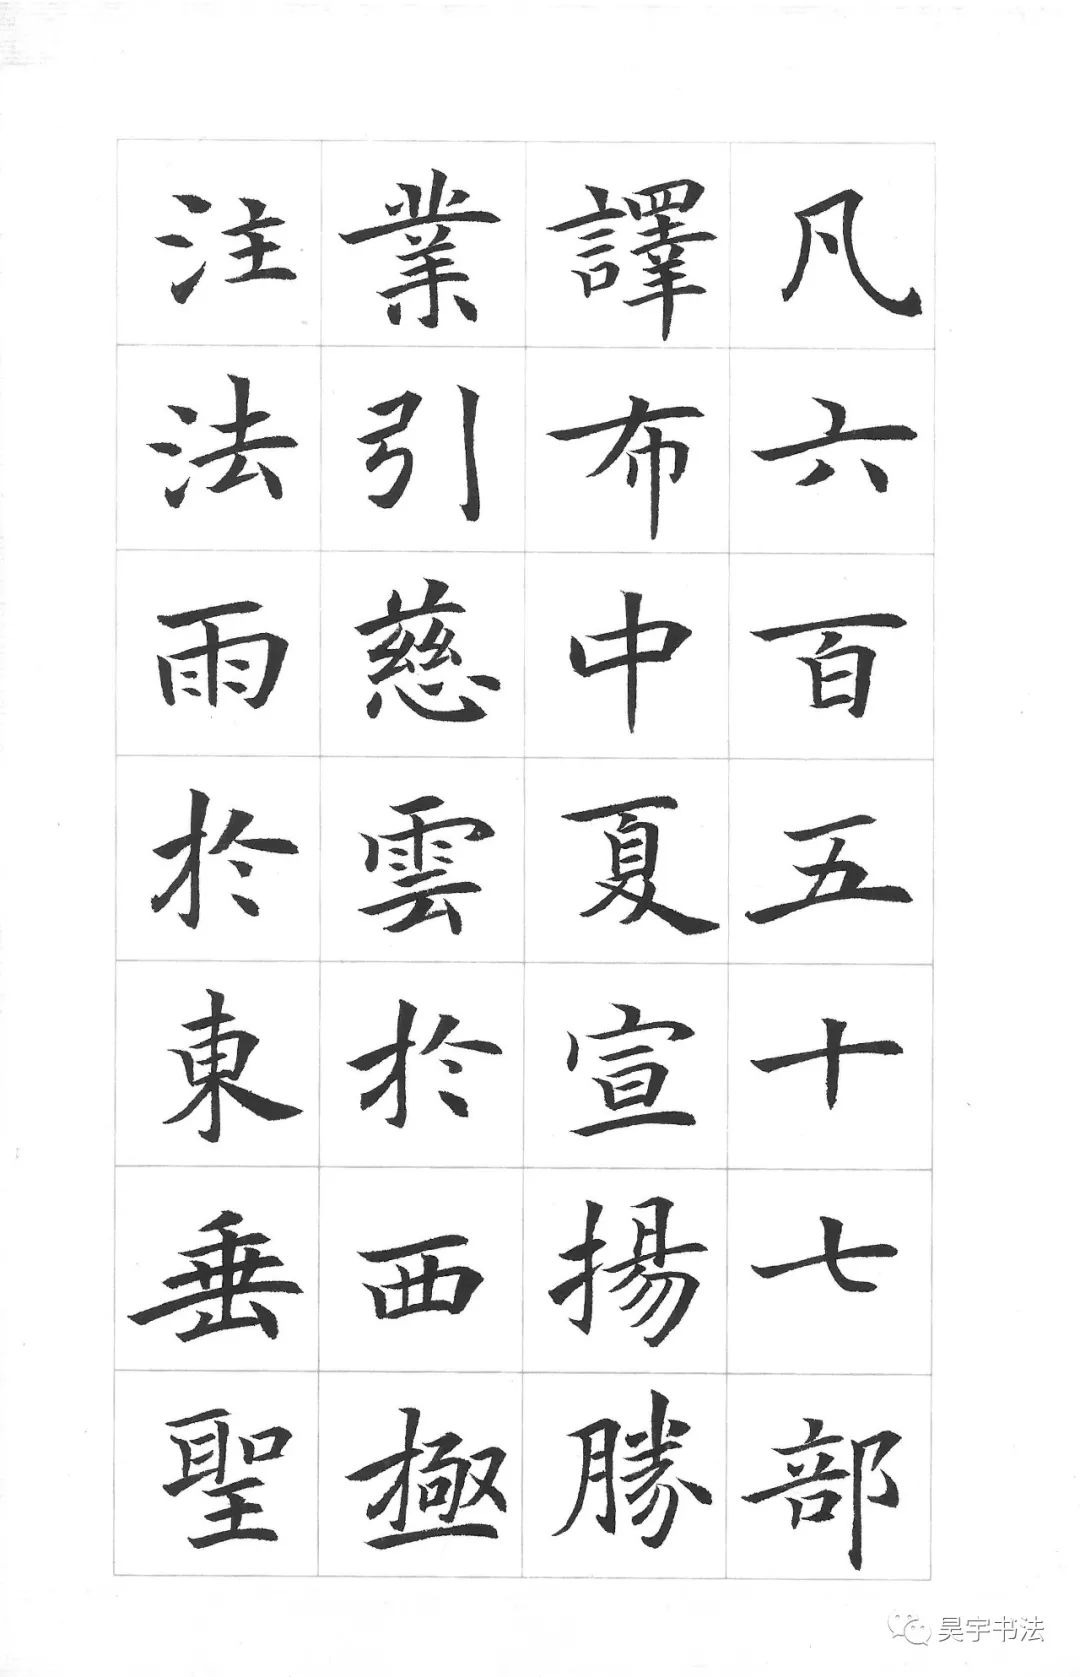 凡六百五十七部
譯布中夏宣揚勝
業引慈雲於西極
注法雨於東垂聖
昊宇书法